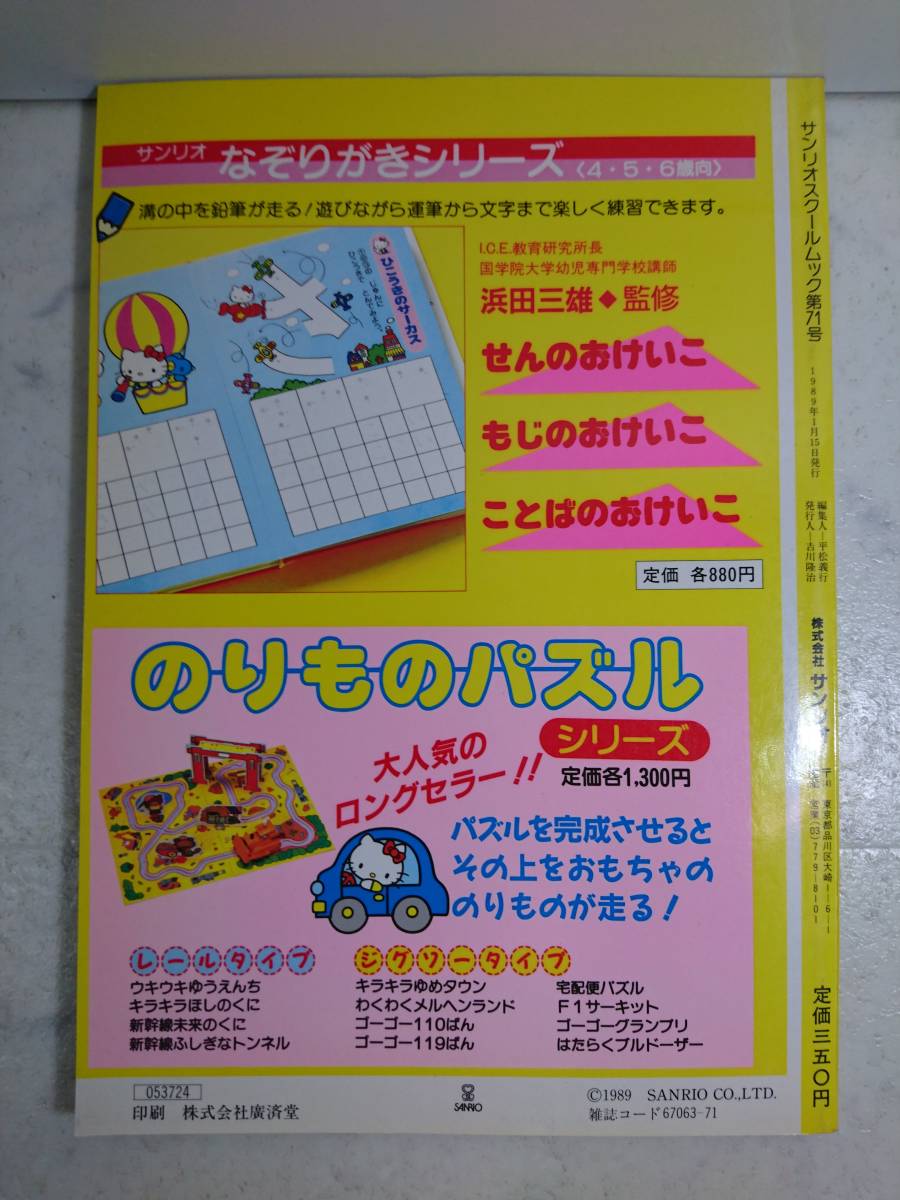 サンリオ なぞりがきシリーズ〈4・5・6歳向〉
溝の中を鉛筆が走る!遊びながら運筆から文字まで楽しく練習できます。
ひこうきのサーカス
I.C.E.教育研究所長
国学院大学幼児専門学校講師
浜田三雄◆監修
せんのおけいこ
もじのおけいこ
ことばのおけいこ
定価 各880円
のりものパズル
シリーズ
定価各1,300円
大人気の
ロングセラー!!
パズルを完成させると
その上をおもちゃの
のりものが走る!
レールタイプ
ウキウキゆうえんち
キラキラほしのくに
新幹線未来のくに
新幹線ふしぎなトンネル
ジグソータイプ
キラキラゆめタウン
わくわくメルヘンランド
ゴーゴー110ばん
ゴーゴー119ばん
宅配便パズル
F1サーキット
ゴーゴーグランプリ
はたらくブルドーザー
053724
印刷 株式会社廣済堂
SANRIO
©1989 SANRIO CO.,LTD.
雑誌コード67063-71
サンリオスクールムック第71号
1989年1月15日発行
編集人―平松義行
発行人―吉川隆治
株式会社 サンリオ
〒141 東京都品川区大崎1-6-1
営業(03)779-8101
定価三五〇円